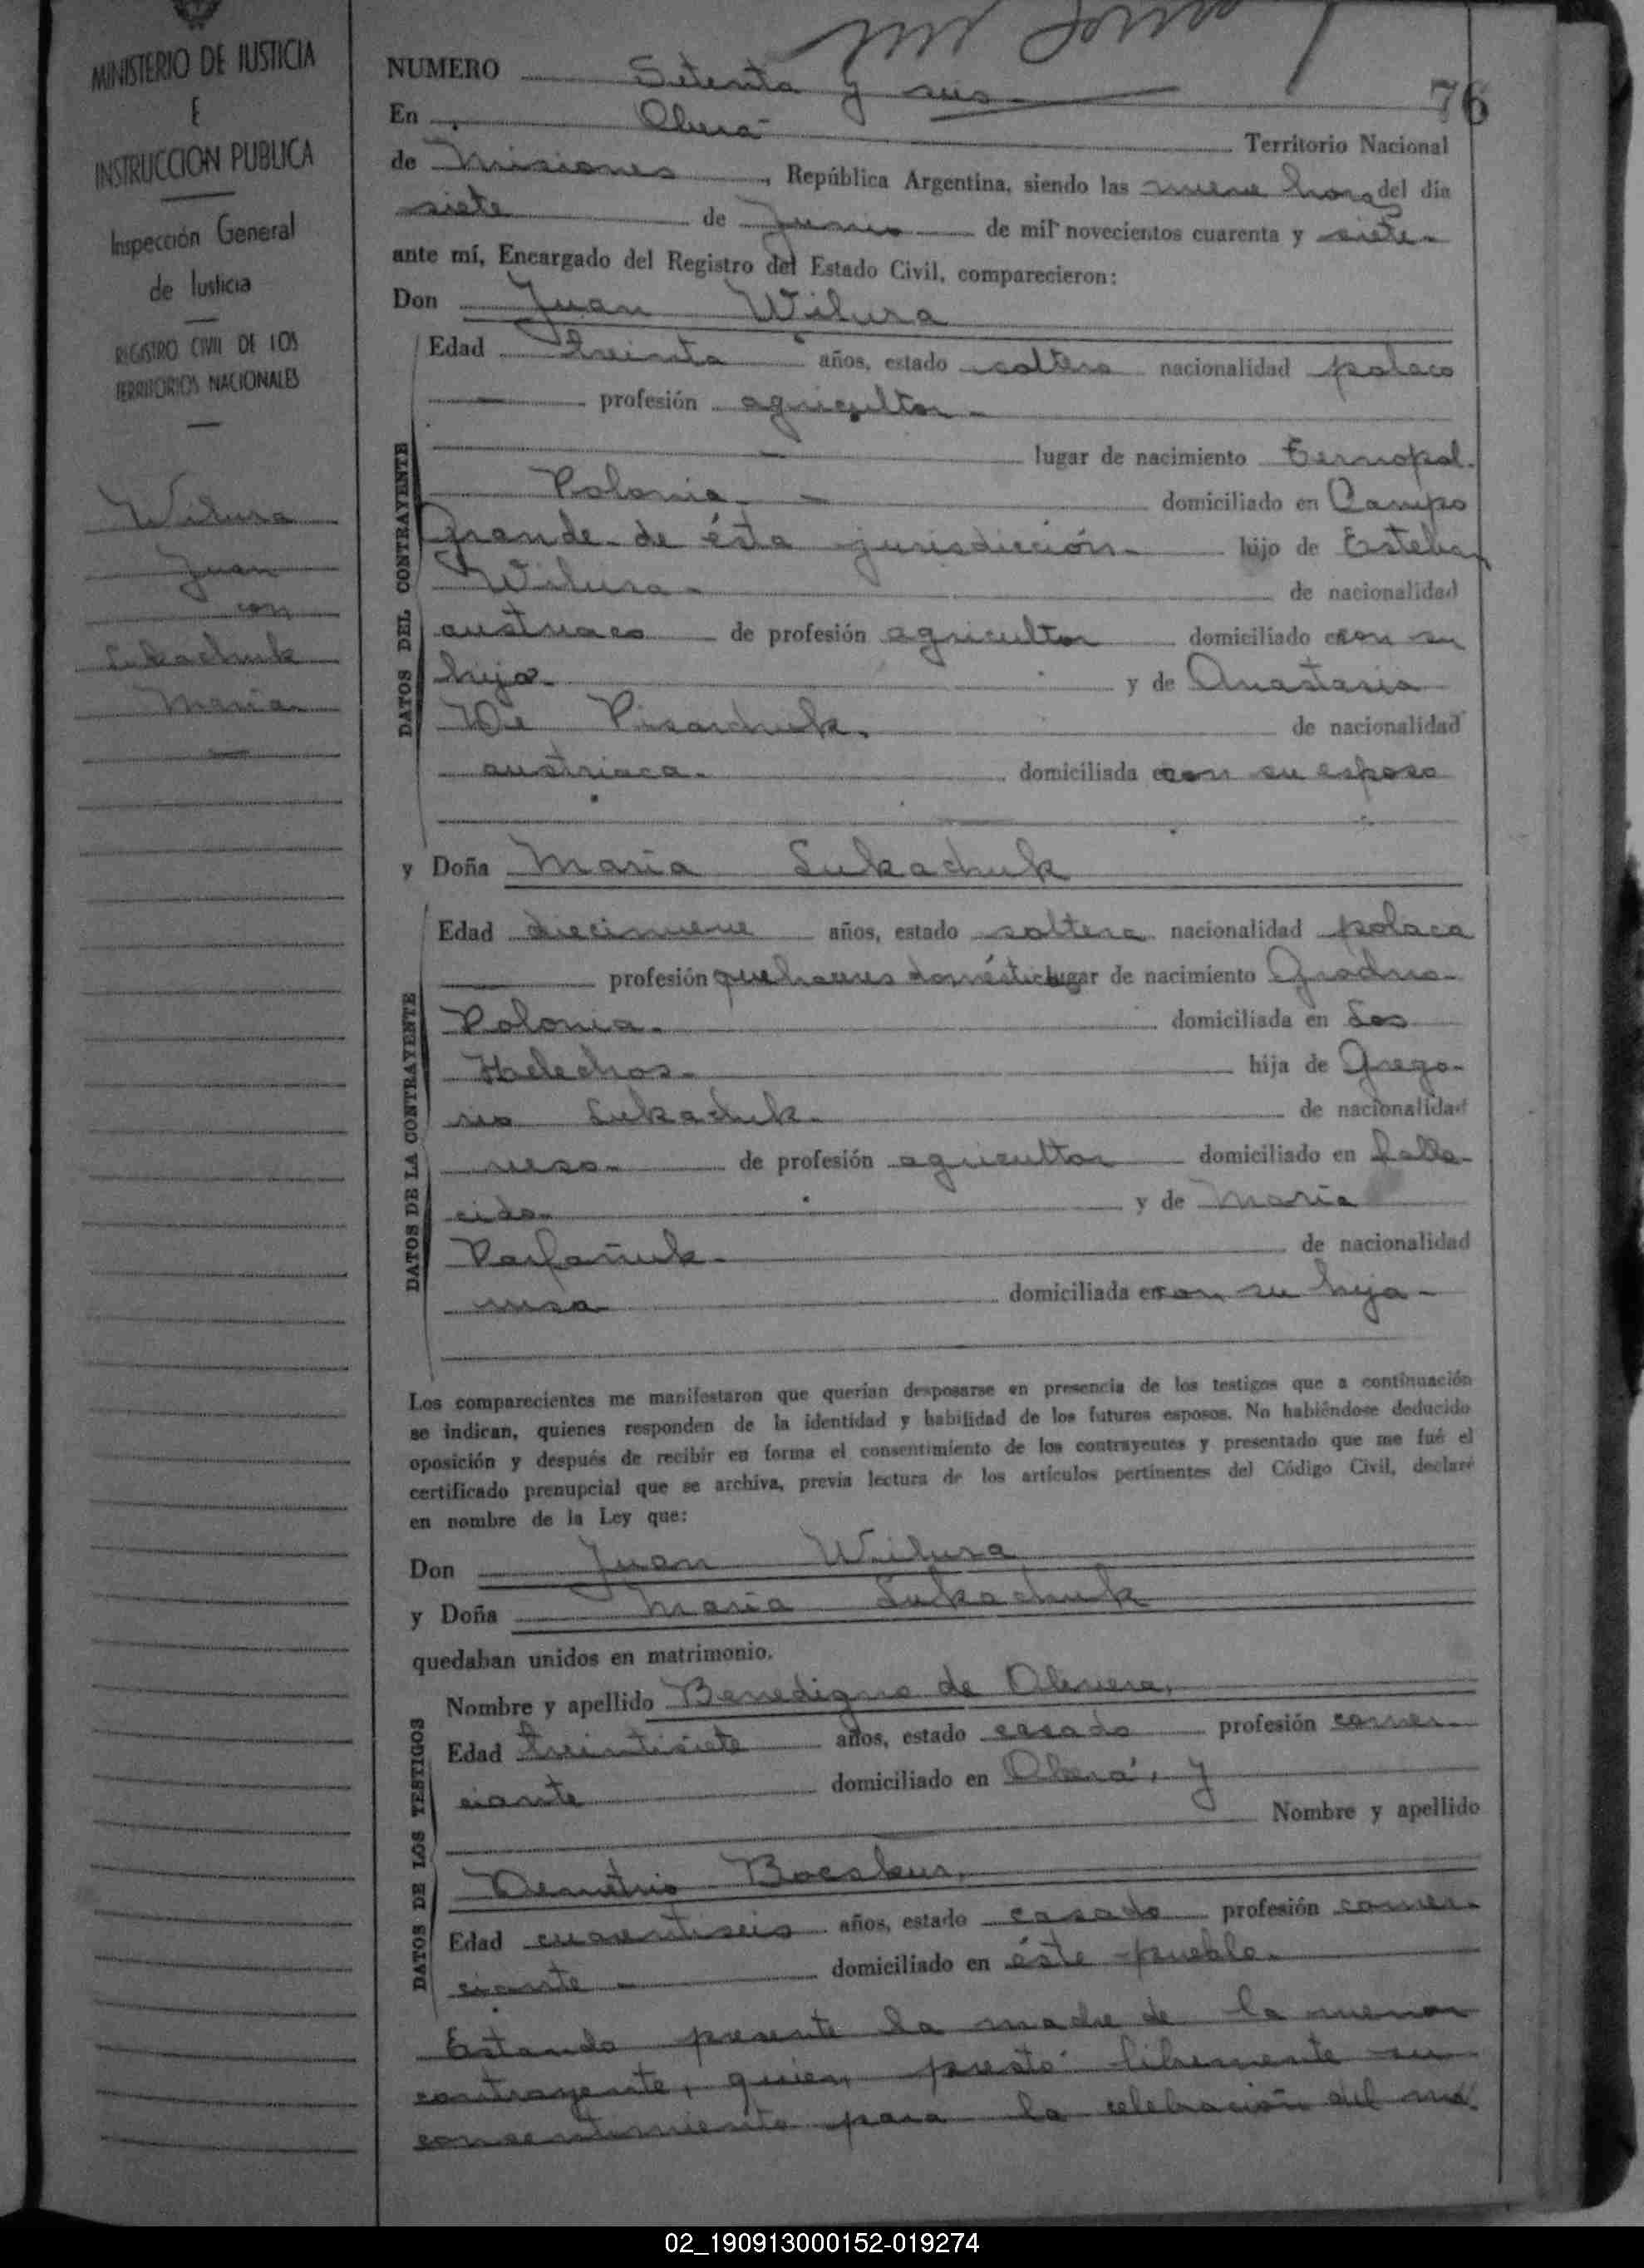 MINISTERIO DE JUSTICIA
E
INSTRUCCION PUBLICA
Inspección General
de Justicia
REGISTRO CIVIL DE LOS
TERRITORIOS NACIONALES
Wilura
Juan
con
Lukachuk
María
NUMERO Setenta y seis
76
En Oberá Territorio Nacional
de Misiones, República Argentina, siendo las nueve horas del día
siete de Junio de mil novecientos cuarenta y siete
ante mí, Encargado del Registro del Estado Civil, comparecieron:
Don Juan Wilura
DATOS DEL CONTRAYENTE
Edad treinta años, estado soltero nacionalidad polaco
profesión agricultor
lugar de nacimiento Ternopol.
Polonia domiciliado en Campo
Grande de ésta jurisdicción hijo de Esteban
Wilura de nacionalidad
austriaco de profesión agricultor domiciliado con su
hijo y de Anastasia
De Pisarchuk. de nacionalidad
austriaca domiciliada con su esposo
y Doña María Lukachuk
DATOS DE LA CONTRAYENTE
Edad diecinueve años, estado soltera nacionalidad polaca
profesión quehaceres domésticos lugar de nacimiento Grodno
Polonia domiciliada en Los
Helechos hija de Grego-
rio Lukachuk de nacionalidad
ruso de profesión agricultor domiciliado en falle-
cido y de María
Parfañuk de nacionalidad
rusa domiciliada con su hija
Los comparecientes me manifestaron que querían desposarse en presencia de los testigos que a continuación
se indican, quienes responden de la identidad y habilidad de los futuros esposos. No habiéndose deducido
oposición y después de recibir en forma el consentimiento de los contrayentes y presentado que me fué el
certificado prenupcial que se archiva, previa lectura de los artículos pertinentes del Código Civil, declaré
en nombre de la Ley que:
Don Juan Wilura
y Doña María Lukachuk
quedaban unidos en matrimonio.
DATOS DE LOS TESTIGOS
Nombre y apellido Benedigno de Olivera,
Edad treintisiete años, estado casado profesión comer-
ciante domiciliado en Oberá, y
Nombre y apellido
Demetrio
Edad cuarentiseis años, estado casado profesión comer-
ciante domiciliado en éste pueblo.
Estando presente la madre de la menor
contrayente, quien, prestó libremente su
consentimiento para la celebración del ma-
02_190913000152-019274